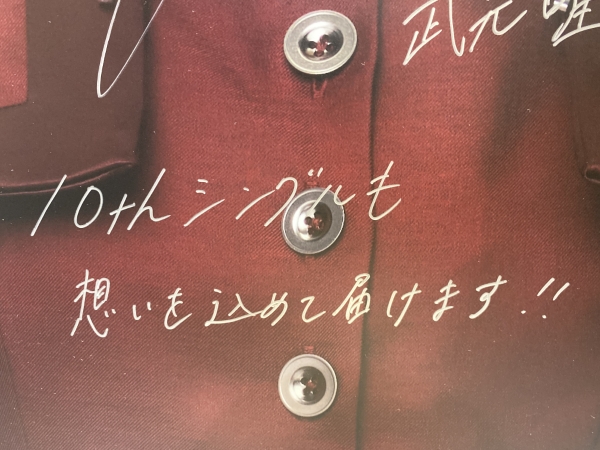 武元唯
10thシングルも
想いを込めて届けます!!